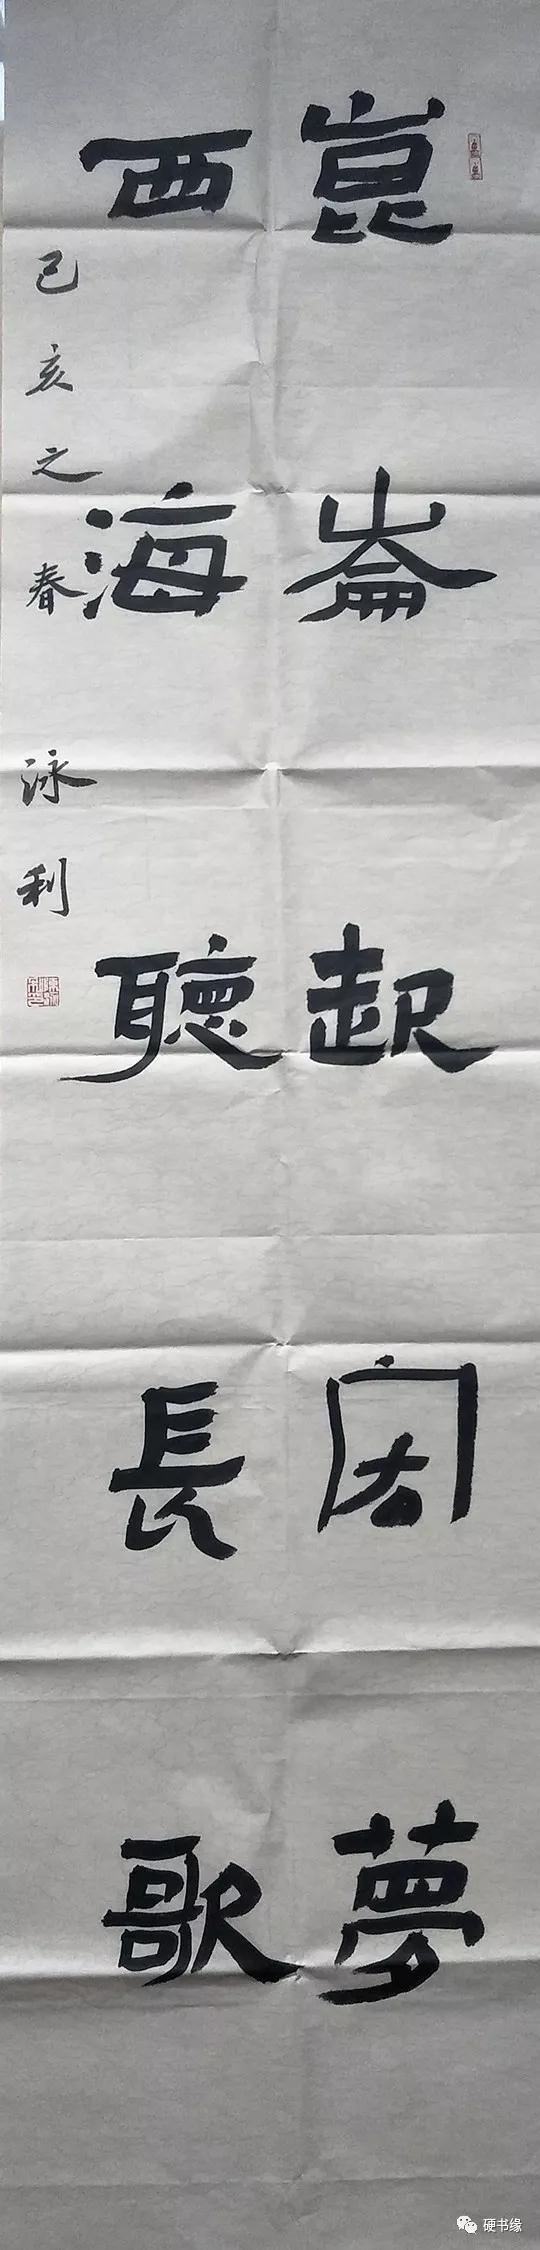 崑崙起宏夢
西海聽長歌
己亥之春 泳利
硬书缘